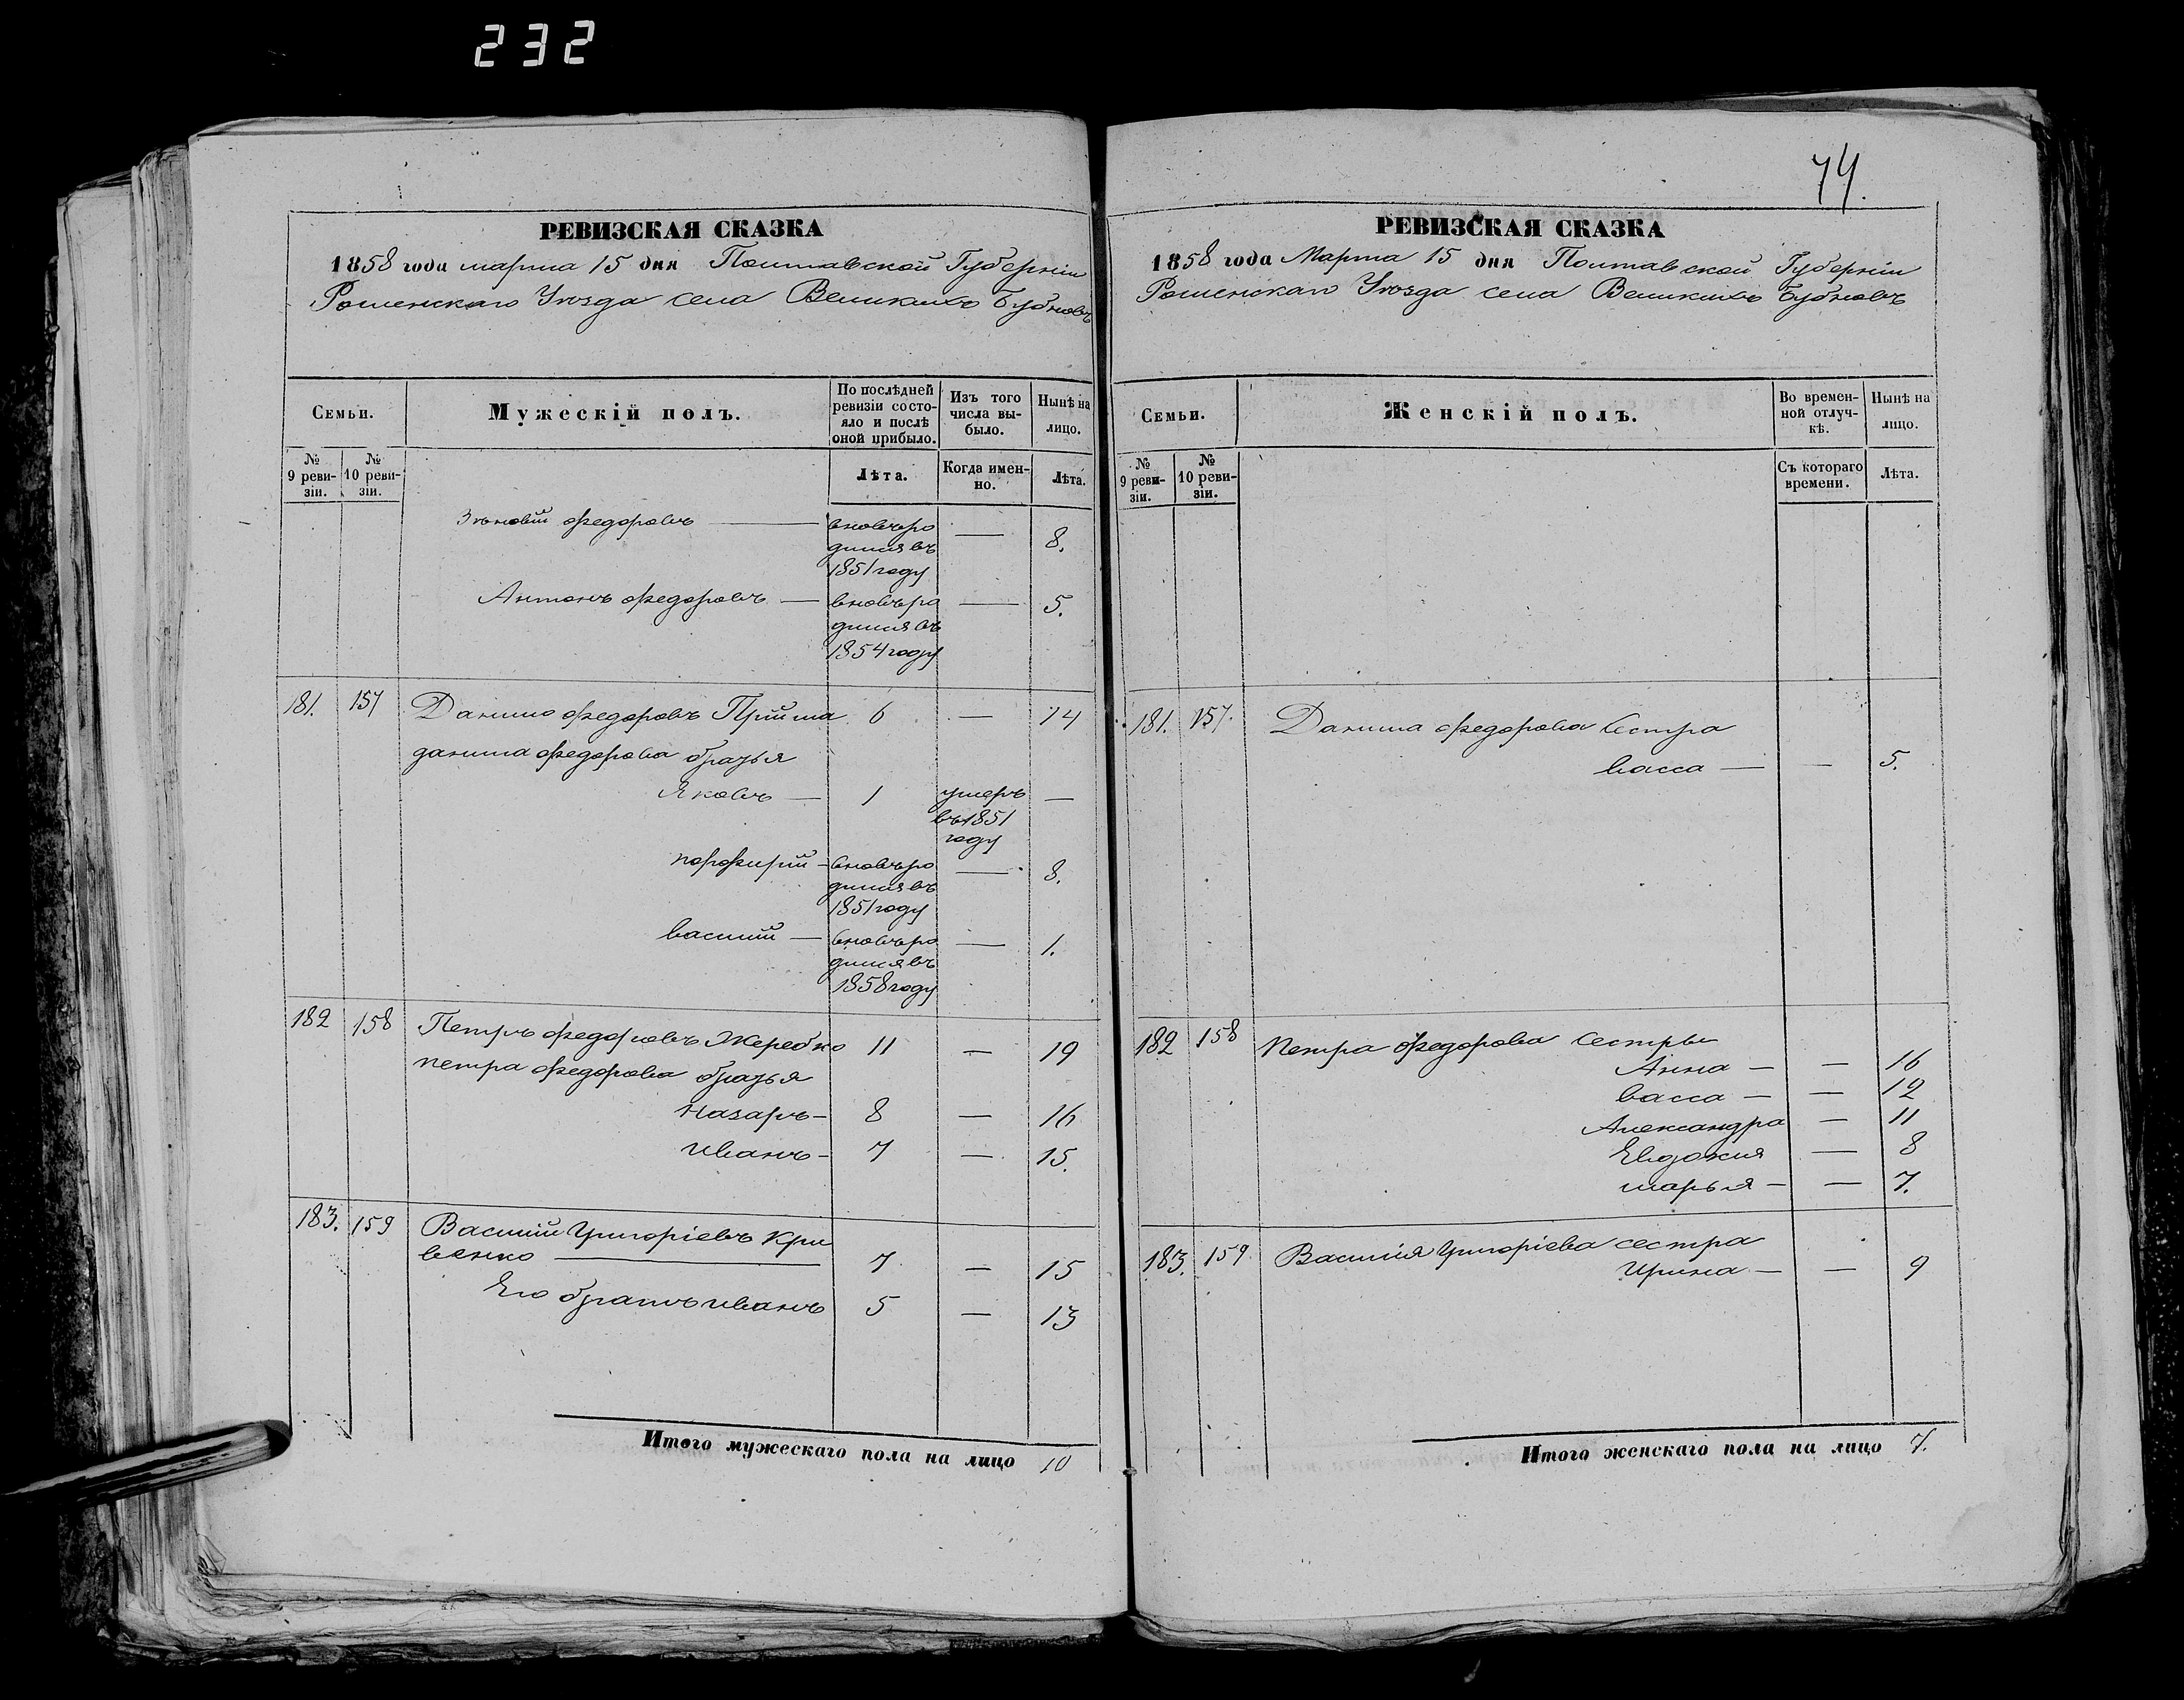 232
РЕВИЗСКАЯ СКАЗКА
1858 года марта 15 дня Полтавской Губерніи
Роменскаго Уѣзда села Великихъ Бубновъ
Семьи.
Мужескій полъ.
По послѣдней ревизіи состояло и послѣ оной прибыло.
Изъ того числа выбыло.
Нынѣ на лицо.
№ 9 ревизіи.
№ 10 ревизіи.
Лѣта.
Когда именно.
Лѣта.
Зѣновій Федоровъ — вновь ро — 8.
дился въ
1851 году
Антонъ Федоровъ — вновь ро — 5.
дился въ
1854 году
181. 157 Данило Федоровъ Прийма 6 — 14
данила Федорова братья
Яковъ — 1 умеръ —
въ 1851
году
порфирий — вновь ро — 8.
дился въ
1851 году
василий — вновь ро — 1.
дился въ
1858 году
182 158 Петръ Федоровъ Жеребко 11 — 19
петра Федорова братья
Назаръ — 8 — 16
иванъ — 7 — 15.
183. 159 Василий Григоріевъ Кри
венко — 7 — 15
Его братъ иванъ 5 — 13
Итого мужескаго пола на лицо 10
74.
РЕВИЗСКАЯ СКАЗКА
1858 года Марта 15 дня Полтавской Губерніи
Роменскаго Уѣзда села Великихъ Бубновъ
Семьи.
Женскій полъ.
Во временной отлучкѣ.
Нынѣ на лицо.
№ 9 ревизіи.
№ 10 ревизіи.
Съ котораго времени.
Лѣта.
181. 157. Данила Федорова Сестра
васса — — 5.
182 158 петра Федорова Сестры
Анна — — 16
васса — — 12
Александра — 11
Евдокия — 8
марья — — 7.
183. 159. Василія Григоріева сестра
Ирина — — 9
Итого женскаго пола на лицо 7.